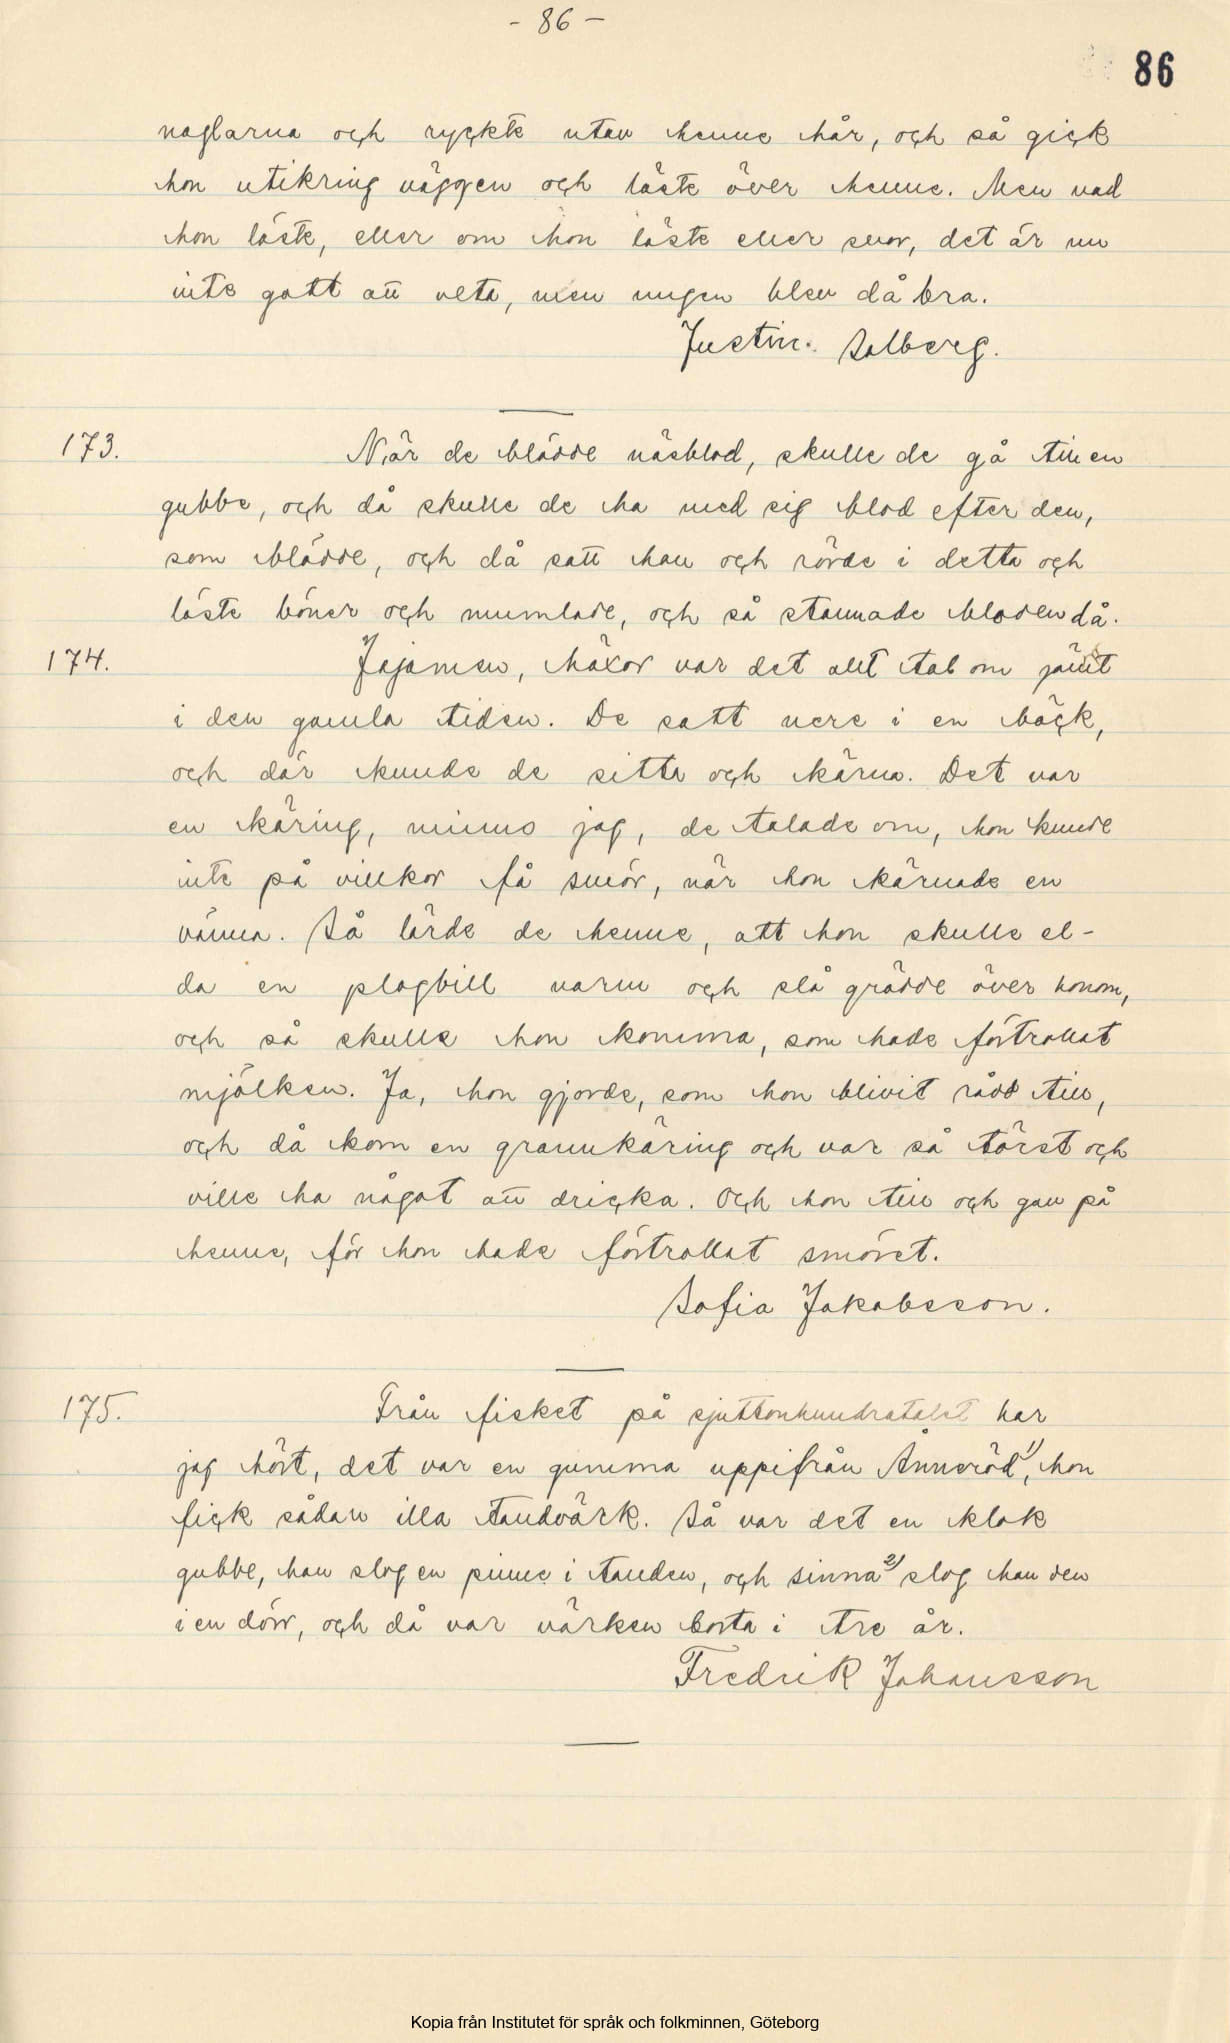 - 86 -
86
naglarna och ryckte utav henne hår, och så gick
hon utikring väggen och läste över henne. Men vad
hon läste, eller om hon läste eller svor, det är nu
inte gott att veta, men ungen blev då bra.
Justin. Salberg.
173. När de blödde näsblod, skulle de gå till en
gubbe, och då skulle de ha med sig blod efter den,
som blödde, och då satt han och rörde i detta och
läste böner och mumlade, och så stannade bloden då.
174. Jajamen, häxor var det allt tal om jämt
i den gamla tiden. De satt nere i en bäck,
och där kunde de sitta och kärna. Det var
en käring, minns jag, de talade om, hon kunde
inte på villkor få smör, när hon kärnade en
vänna. Så lärde de henne, att hon skulle el-
da en plogbill varm och slå grädde över honom,
och så skulle hon komma, som hade förtrollat
mjölken. Ja, hon gjorde, som hon blivit rådd till,
och då kom en grannkäring och var så törst och
ville ha något att dricka. Och hon till och gav på
henne, för hon hade förtrollat smöret.
Sofia Jakobsson.
175. Från fisket på sjuttonhundratalet har
jag hört, det var en gumma uppifrån Änneröd 1), hon
fick sådan illa tandvärk. Så var det en klok
gubbe, han slog en pinne i tanden, och sinna 2) slog han den
i en dörr, och då var värken borta i tre år.
Fredrik Johansson
Kopia från Institutet för språk och folkminnen, Göteborg